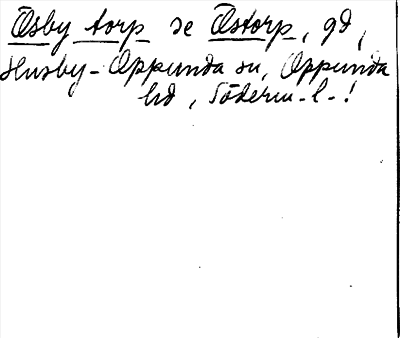 Ösby torp se Östorp, gd,
Husby-Oppunda sn, Oppunda
hd, Söderm. l.!